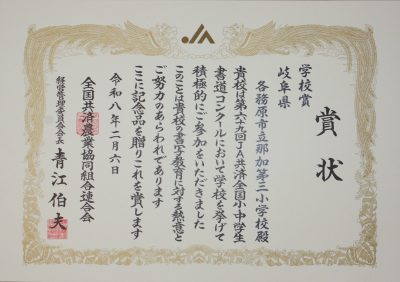 JA
賞状
学校賞
岐阜県
各務原市立那加第三小学校殿
貴校は第六十九回JA共済全国小中学生
書道コンクールにおいて学校を挙げて
積極的にご参加をいただきました
このことは貴校の書写教育に対する熱意と
ご努力のあらわれであります
ここに記念品を贈りこれを賞します
令和八年二月六日
全国共済農業協同組合連合会
経営管理委員会会長 青江伯夫